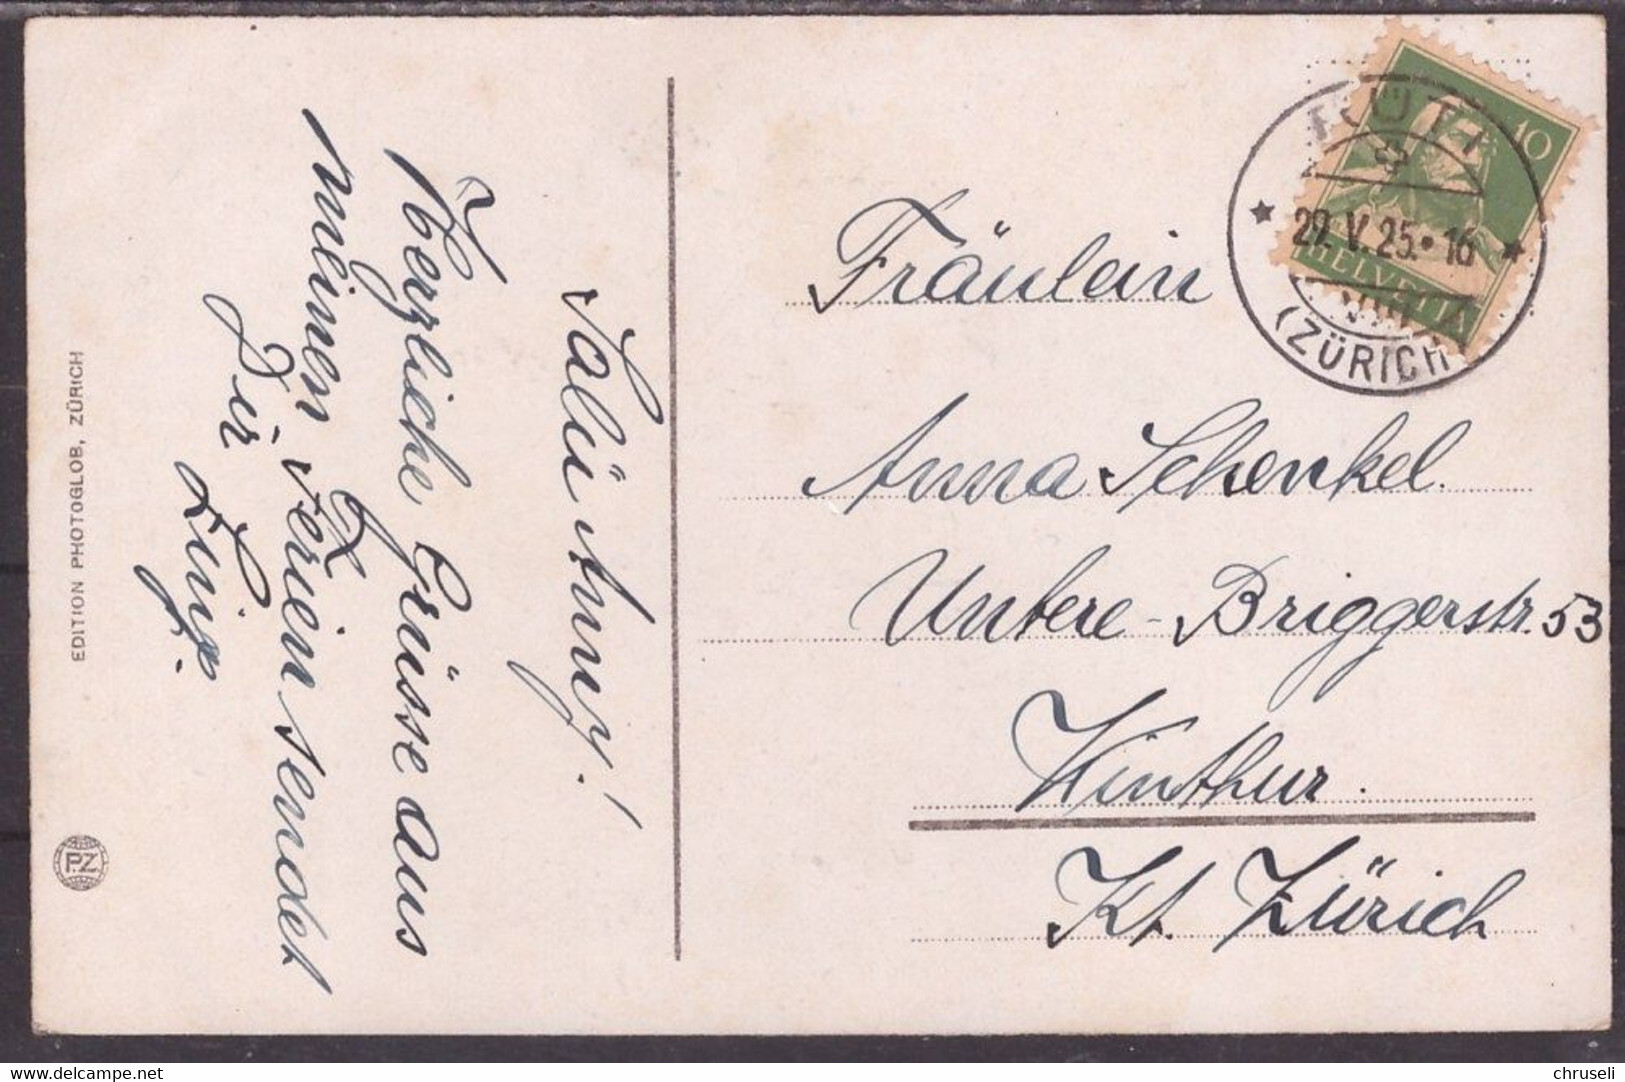 Salü Anny!
Herzliche Grüsse aus
meinen Ferien sendet
Dir
EDITION PHOTOGLOB, ZÜRICH
P.Z.
RÜTI
29.V.25.16
(ZÜRICH)
10
HELVETIA
Fräulein
Anna Schenkel.
Untere-Briggerstr. 53
Winthur.
Kt. Zürich
delcampe.net
chruseli